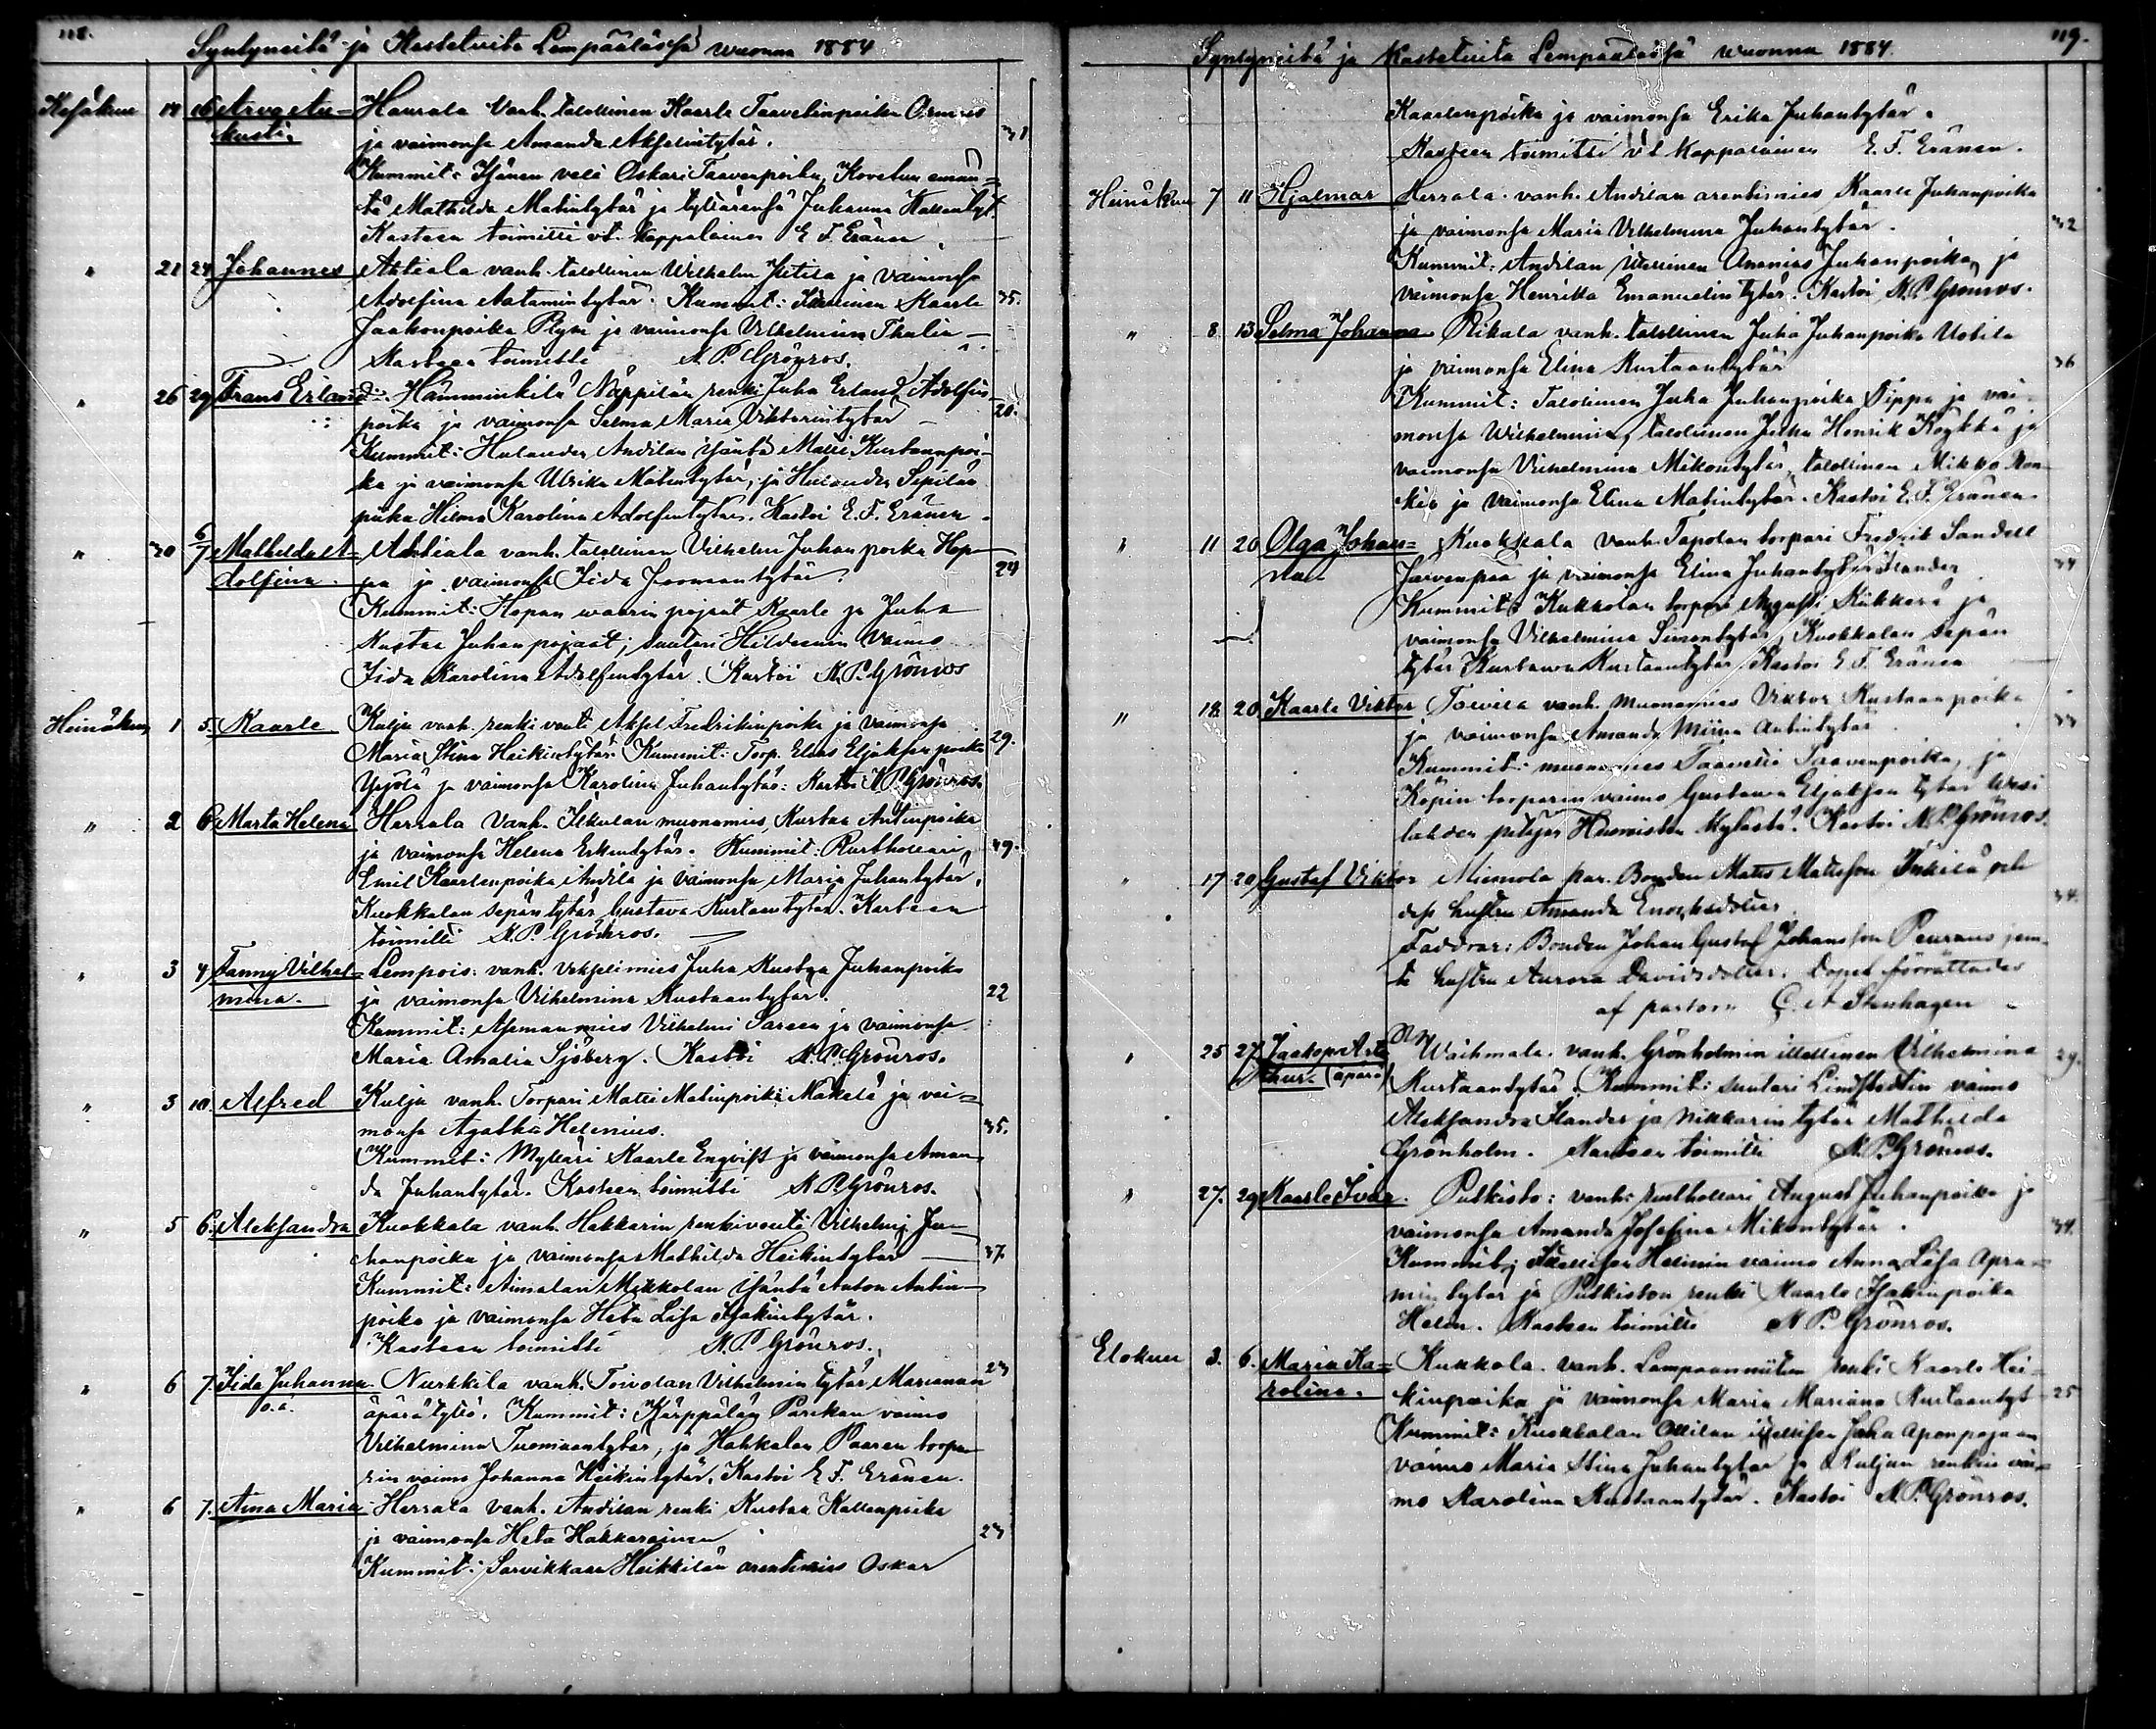 118.
Syntyneitä ja Kastetuita Lempäälässä wuonna 1884
Kesäkuu 14 16 Arvo Au- Haurala vanh. talollinen Kaarle Taavetinpoika
kusti. ja vaimonsa Amanda Akselintytär. 31
Kummit: Isännän veli Oskari Taavenpoika, emän-
tä Mathilda Matintytär ja tyttärensä Johanna
Kasteen toimitti vt. Kappalainen E. F. Eränen.
" 21 24 Johannes Ahtiala vanh. talollinen Wilhelm Jutila ja vaimonsa
Adolfina Aatamintytär. Kummit: Itsellinen Kaarle 35.
Jaakonpoika ja vaimonsa Vilhelmiina
Kasteen toimitti N. P. Grönros.
" 26 29 Frans Erland. Hämminkilä Näppilän renki Juha Erland Adolfin
poika ja vaimonsa Selma Maria Viktorintytär 20.
Kummit: Andilan isäntä Matti Kustaanpoi-
ka ja vaimonsa Ulrika Matintytär, ja Sipilän
piika Hilma Karolina Adolfintytär. Kastoi E. F. Eränen.
" 30 6/7 Mathilda A- Ahtiala vanh. talollinen Vilhelm Juhanpoika Hop-
dolfina. pa ja vaimonsa Iida Joonaantytär. 24
Kummit: Hopan waarin pojat Kaarle ja Juha
Kustaa Juhan pojat, suutari vaimo
Iida Karolina Adolfintytär. Kastoi N. P. Grönros
Heinäkuu 1 5. Kaarle Kulju vanh. renki vouti Aksel Fredrikinpoika ja vaimonsa
Maria Stina Heikintytär. Kummit: Torp. Elias Eljaksenpoika 29.
Yrjölä ja vaimonsa Karolina Juhantytär. Kastoi N. P. Grönros.
" 2 6 Marta Helena Herrala vanh. muonamies, Kustaa Antinpoika
ja vaimonsa Helena Erkintytär. Kummit: Rusthollari 39.
Emil Kaarlenpoika Andila ja vaimonsa Maria Juhantytär,
Kuokkalan sepäntytär Gustava Kustaantytär. Kasteen
toimitti N. P. Grönros.
" 3 4 Fanny Vilhel- Lempois. vanh. Juha Kustaa Juhanpoika
mina. ja vaimonsa Vilhelmina Kustaantytär. 22
Kummit: Asemanmies Vilhelmi Saren ja vaimonsa
Maria Amalia Sjöberg. Kastoi N. P. Grönros.
" 3 10 Alfred Kulju vanh. Torpari Matti Matinpoika Mäkelä ja vai-
monsa Agatha Helenius. 35.
Kummit: Mylläri Kaarle Engvist ja vaimonsa Aman-
da Juhantytär. Kasteen toimitti N. P. Grönros.
" 5 6. Aleksandra Kuokkala vanh. Hakkarin renkivouti Vilhelmi Ju-
hanpoika ja vaimonsa Mathilda Heikintytär 37.
Kummit: Aimalan Mikkolan isäntä Anton Antin-
poika ja vaimonsa Heta Liisa Isakintytär.
Kasteen toimitti N. P. Grönros.
" 6 7. Iida Juhanna Nurkkila vanh. Toivolan Vilhelmin tytär Mariana 23
o.ä. äpärätyttö. Kummit: Kärppälän Parikan vaimo
Vilhelmina Tuomaantytär, ja Hakkalan Paaren torpa-
rin vaimo Johanna Heikintytär. Kastoi E. F. Eränen.
" 6 7. Aina Maria Herrala vanh. Andilan renki Kustaa Kallenpoika
ja vaimonsa Heta Hakkarainen 23
Kummit: Sarvikkaan Heikkilän arentimies Oskar
119.
Syntyneitä ja Kastetuita Lempäälässä wuonna 1884.
Kaarlenpoika ja vaimonsa Erika Juhantytär.
Kasteen toimitti vt Kappalainen E. F. Eränen.
Heinäkuu 7 11 Hjalmar Herrala. vanh. Andilan arentimies Kaarle Juhanpoika
ja vaimonsa Maria Vilhelmiina Juhantytär. 32
Kummit: Andilan itsellinen Ananias Juhanpoika, ja
vaimonsa Henrikka Emanuelin tytär. Kastoi N. P. Grönros.
" 8. 13 Selma Johanna Rikala vanh. talollinen Juha Juhanpoika Uotila
ja vaimonsa Elina Kustaantytär 36
Kummit: Talollinen Juha Juhanpoika Pippa ja vai-
monsa Wilhelmiina, talollinen Juha Henrik Köykkä ja
vaimonsa Vilhelmina Mikontytär, talollinen Mikko
ja vaimonsa Elina Matintytär. Kastoi E. F. Eränen.
" 11 20 Olga Johan- Kuokkala vanh. Tapolan torpari Fredrik Sandell
na Järvenpää ja vaimonsa Elina Juhantytär Ilander 34
Kummit: Kukkolan torpari Augusti ja
vaimonsa Vilhelmina Simontytär, Kuokkalan sepän
tytär Kustaava Kustaantytär. Kastoi E. F. Eränen
" 18. 20 Kaarle Viktor Toivila vanh. muonamies Viktor Kustaanpoika
ja vaimonsa Amanda Miina Antintytär 33
Kummit: muonamies Taavetti Taavenpoika, ja
Köpin torparin vaimo Gustaava Eljaksen tytär Wesi
lahden pitäjän kylästä. Kastoi N. P. Grönros.
" 17 20 Gustaf Viktor Miemola par. Bonden Matts Mattsson Inkilä och
dess hustru Amanda Enocksdotter. 34.
Faddrar: Bonden Johan Gustaf Johansson Peurans jem-
te hustru Aurora Davidsdotter. Dopet förrättades
af pastorn C. A. Stenhagen
" 25 27 Jaakop Art- Waihmala. vanh. Grönholmin itsellinen Vilhelmina
hur (äpärä) Kustaantytär. Kummit: suutari Lindstedtin vaimo 29.
Aleksandra Ilander ja Nikkarin tytär Mathilda
Grönholm. Kasteen toimitti N. P. Grönros.
" 27. 29 Kaarle Ivar. Putkisto: vanh. rusthollari August Juhanpoika ja
vaimonsa Amanda Josefina Mikontytär. 34.
Kummit; Itsellisen Helinin vaimo Anna Liisa Apra-
min tytär ja Putkiston renki Kaarlo Isakinpoika
Helin. Kasteen toimitti N. P. Grönros.
Elokuu 3. 6. Maria Ka- Kukkola. vanh. Lempäänniitun renki Kaarlo Hei-
rolina. kinpoika ja vaimonsa Maria Mariana Kustaantyt 25
Kummit: Kuokkalan Ollilan itsellisen Juha Aponpojan
vaimo Maria Stina Juhantytär ja Kuljun renkin vai-
mo Karolina Kustaantytär. Kastoi N. P. Grönros.